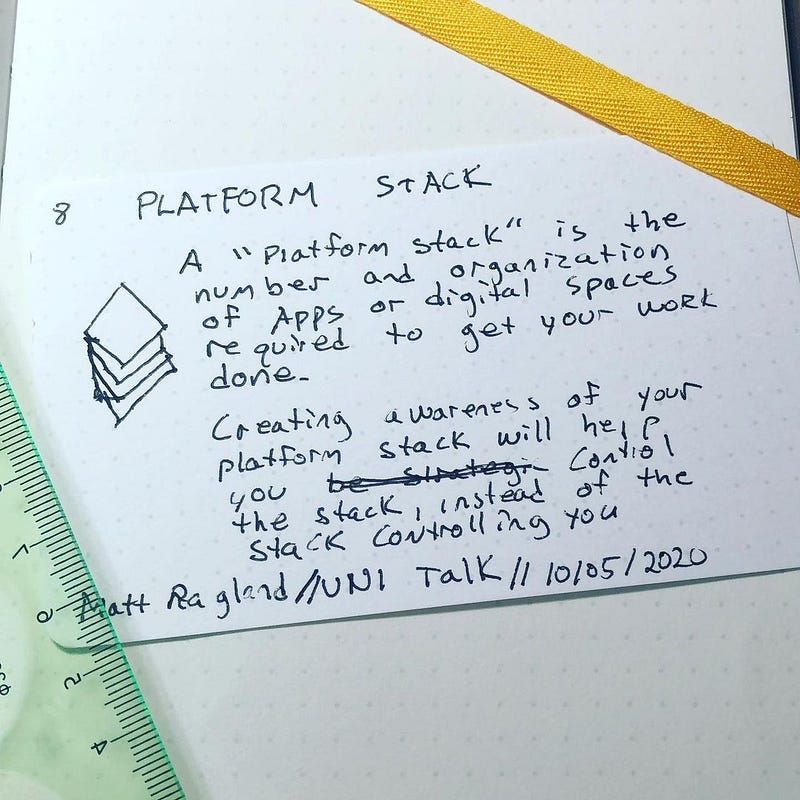 8 PLATFORM STACK
A "Platform stack" is the
number and organization
of APPS or digital spaces
required to get your work
done.
Creating awareness of your
platform stack will help
you be strategi control
the stack, instead of the
stack controlling you
Matt Ragland//UNI Talk//10/05/2020